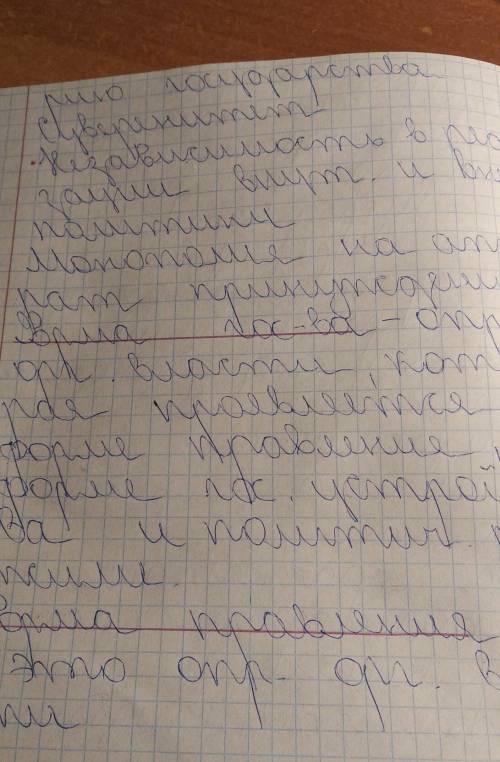 рию государства
Суверенитет
Независимость в реа
зации внут. и вн
политики
Монополия на апп
рат принуждения
Форма гос-ва - опр
орг. власти, кот
рая проявляется
форме правления
форме гос. устрой
ва и политич. р
жиме.
орма правления
это опр- орг. в
ти